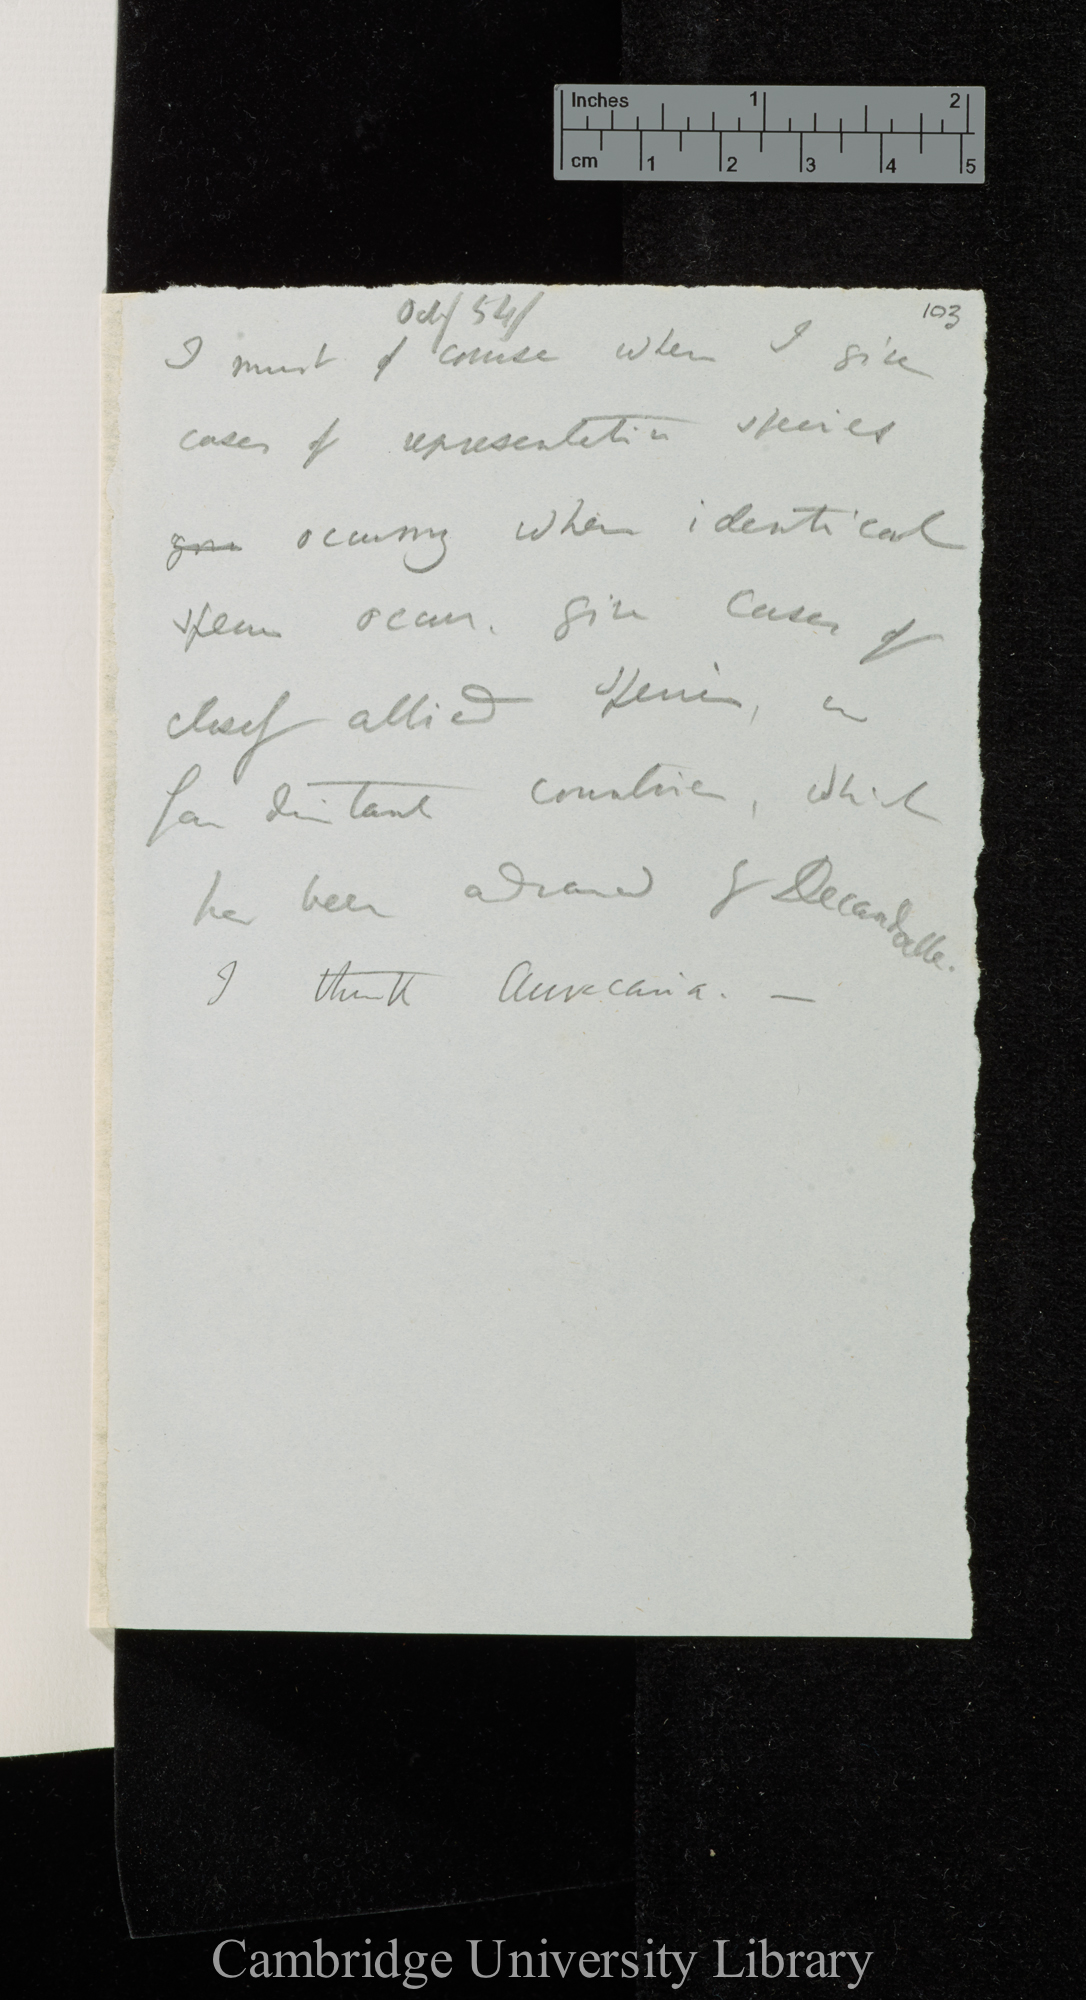 Inches 1 2
cm 1 2 3 4 5
103
Oct/54/
I must of course when I give
cases of representative species
give occurring when identical
species occur. give cases of
closely allied species, in
far distant countries, which
has been advanced by Decandolle.
I think Auracaria. —
Cambridge University Library